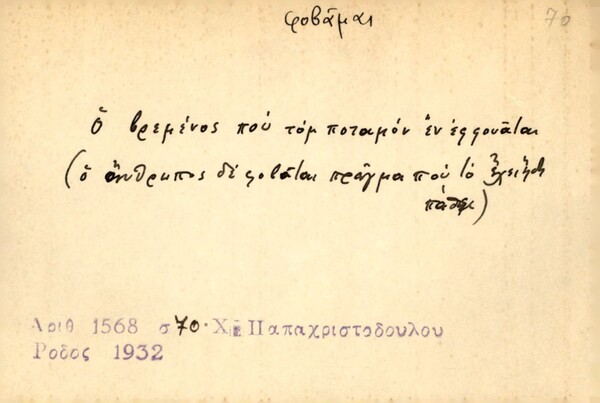 φοβᾶμαι
70
Ὁ βρεμένος ποὺ τὸμ ποταμὸν ἐν ἐφουᾶται
(ὁ ἄνθρωπος δὲ φοβᾶται πρᾶγμα ποὺ τὸ ἔχει ἤδη
πάθει)
Αριθ 1568 σ 70 · Χρ Παπαχριστοδουλου
Ροδος 1932